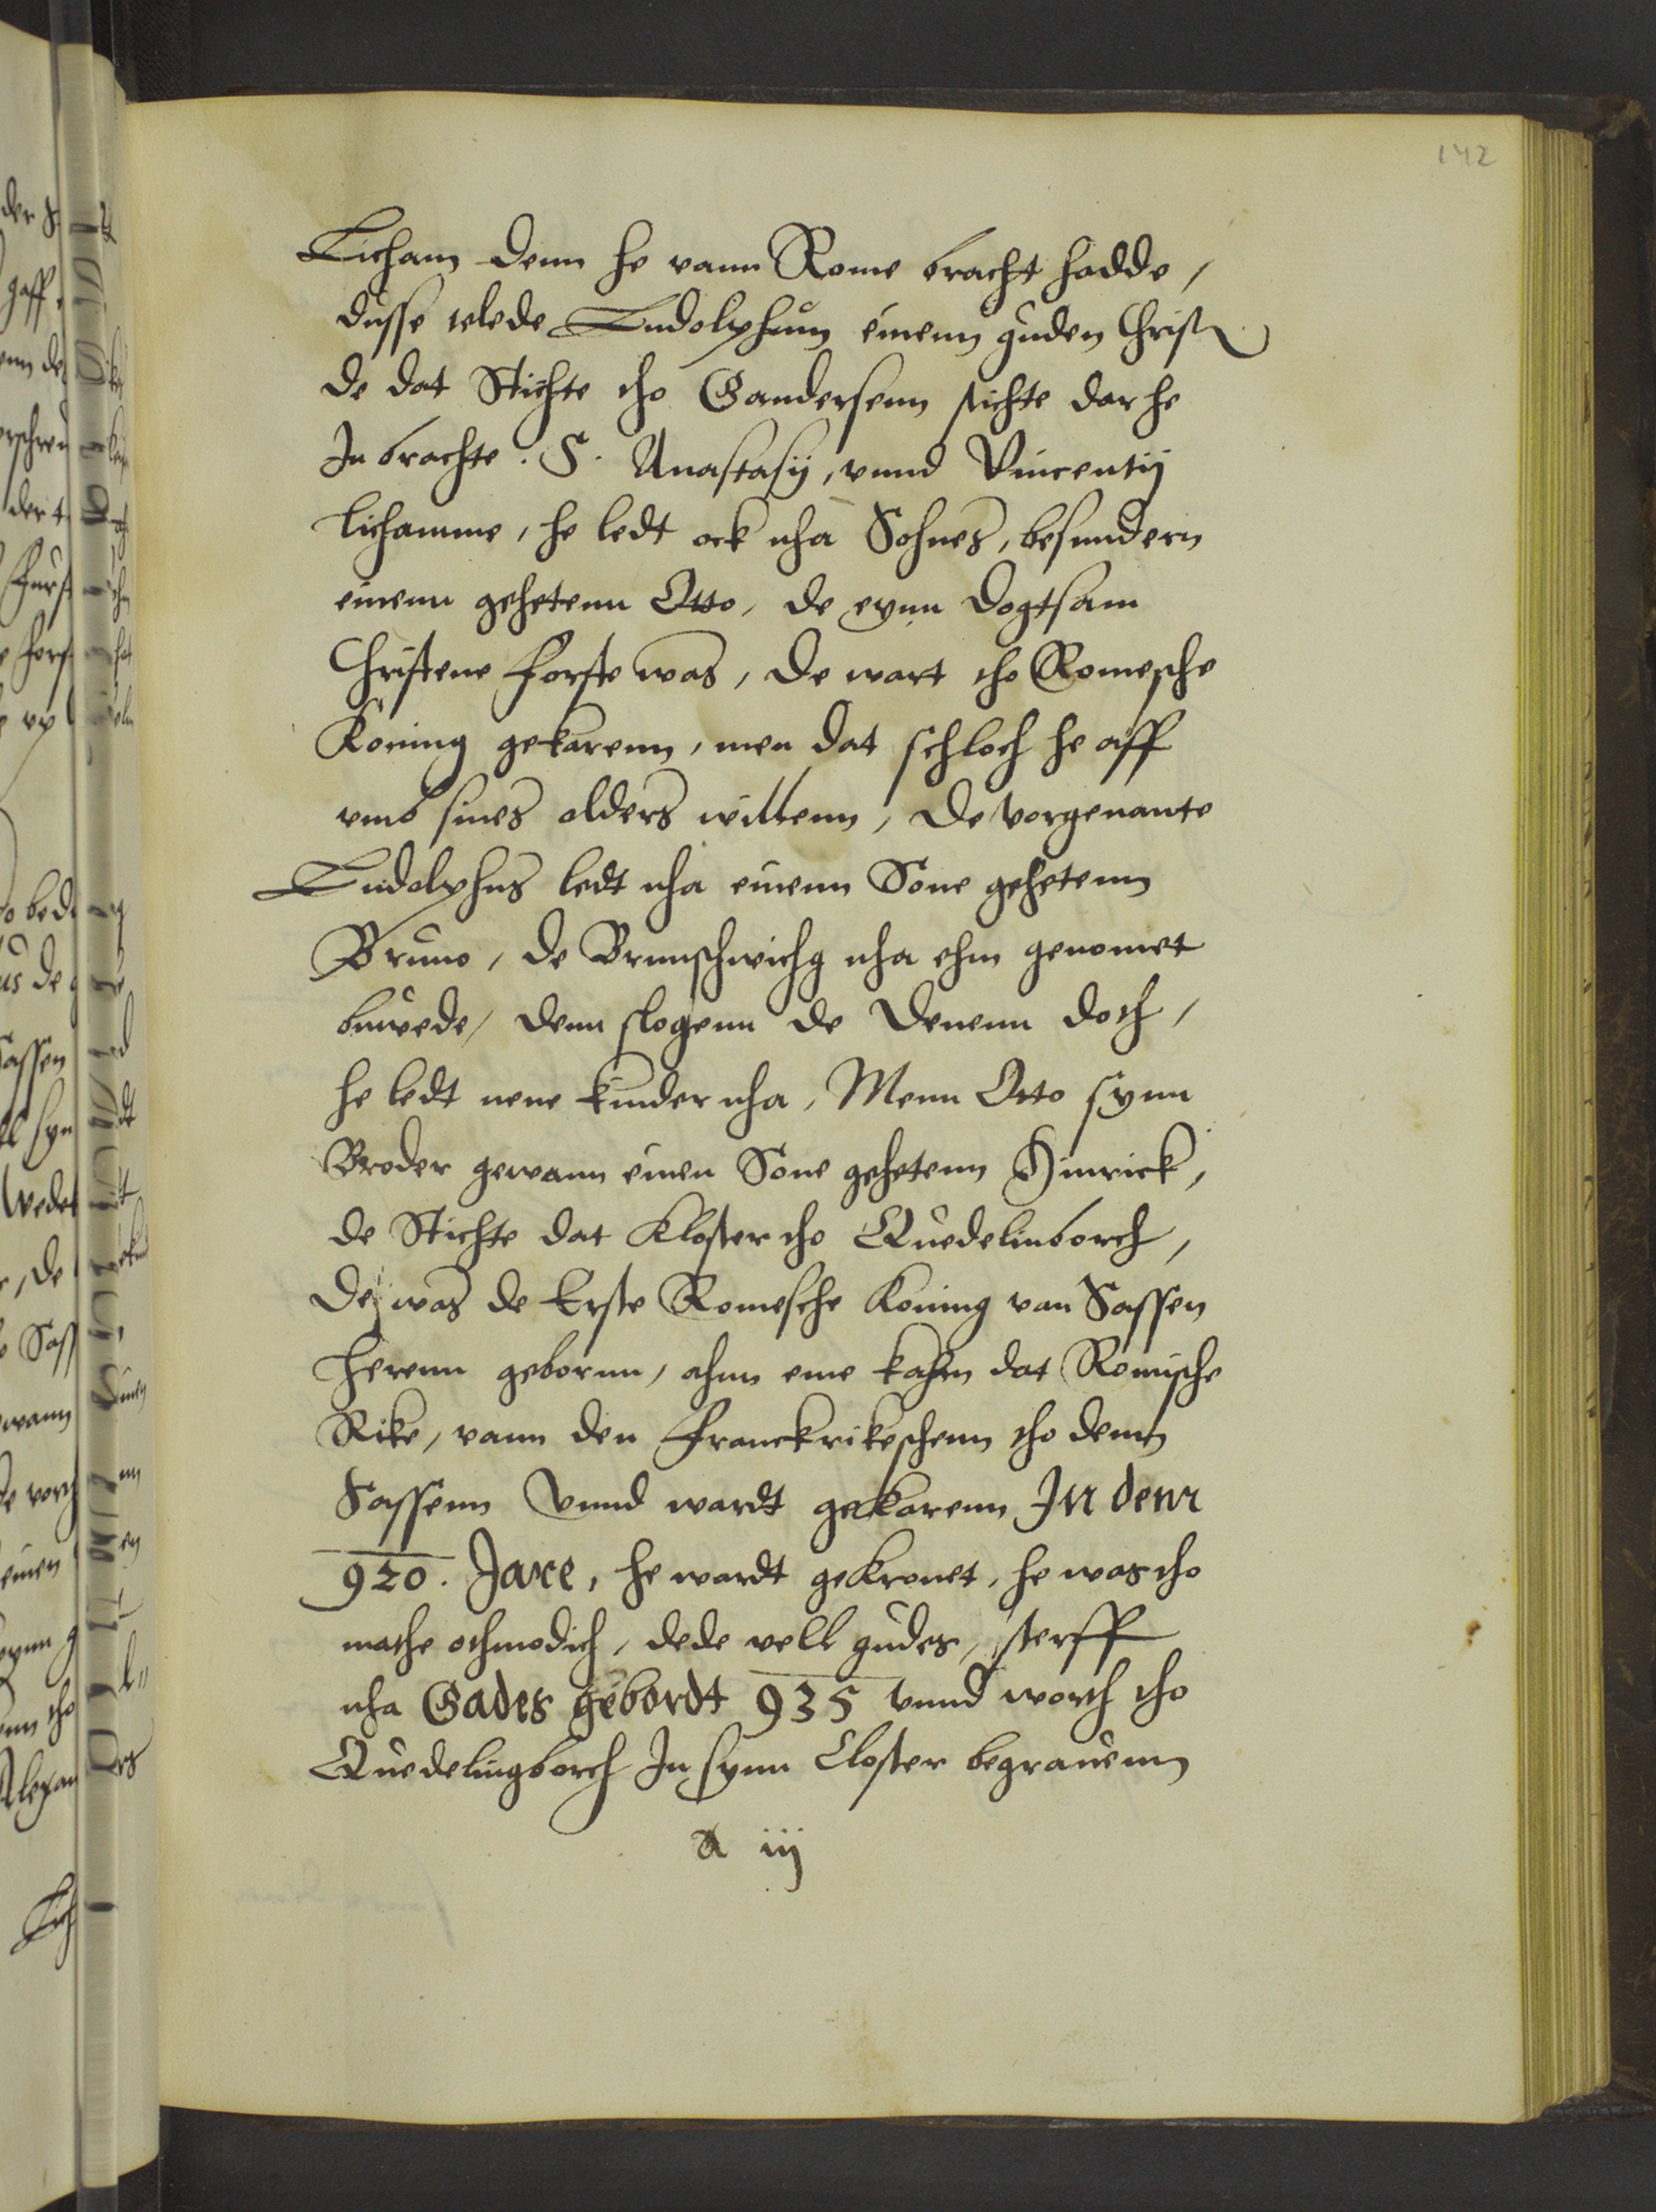 142
Licham denn he vann Rome bracht hadde,
dusse telede Ludolphum einenn guden Christen
de dat Stichte tho Gandersenn stichte dar he
In brachte. S. Anastasij, vnnd Vincentij
lichamme, he ledt ock nha Sohnes, besundern
einenn gehetenn Otto, de eynn dogtsam
Christene Forste was, de wart tho Romesche
Koning gekarenn, men dat schloch he aff
vmb sines olders willenn, de vorgenante
Ludolphus ledt nha einenn Sone gehetenn
Bruno, de Brunschwichg nha ehm genomet
buwede, denn slogenn de Denenn doth,
he ledt nene kinder nha, Menn Otto synn
Broder gewann einen Sone gehetenn Hinrick,
de Stichte dat Kloster tho Quedelinborch,
De was de Erste Romesche Koning van Sassen
herenn gebornn, ahnn eme kahm dat Romische
Rike, vann den Franckrikeschenn tho denn
Sassenn Vnnd wardt gekarenn In denn
920. Jare, he wardt gekronet, he was tho
mathe othmodich, dede vell gudes, sterff
nha Gades gebordt 935 vnnd worth tho
Quedelingborch In synn Closter begrauenn
a iij